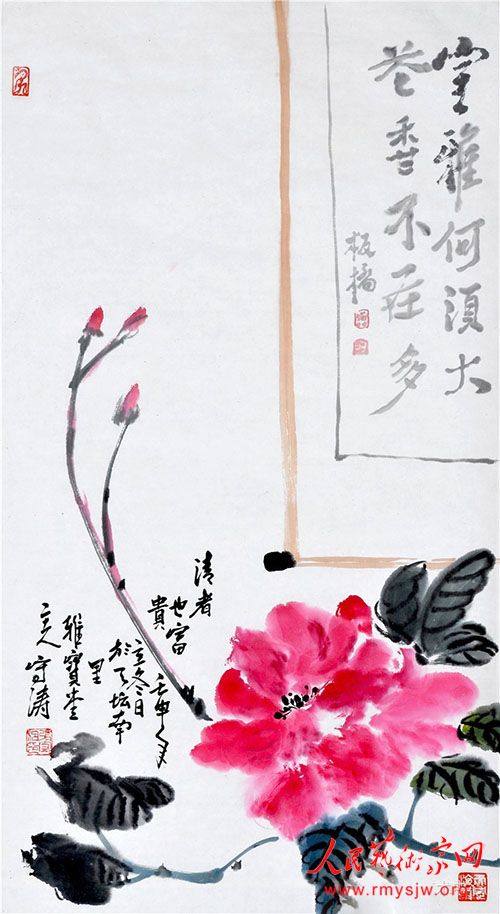 室雅何須大
花香不在多
板橋
清者
也富
貴
壬申年
立冬日
於天坛南
里
雅寶堂
主人守濤
人民藝術家网
www.rmysjw.org